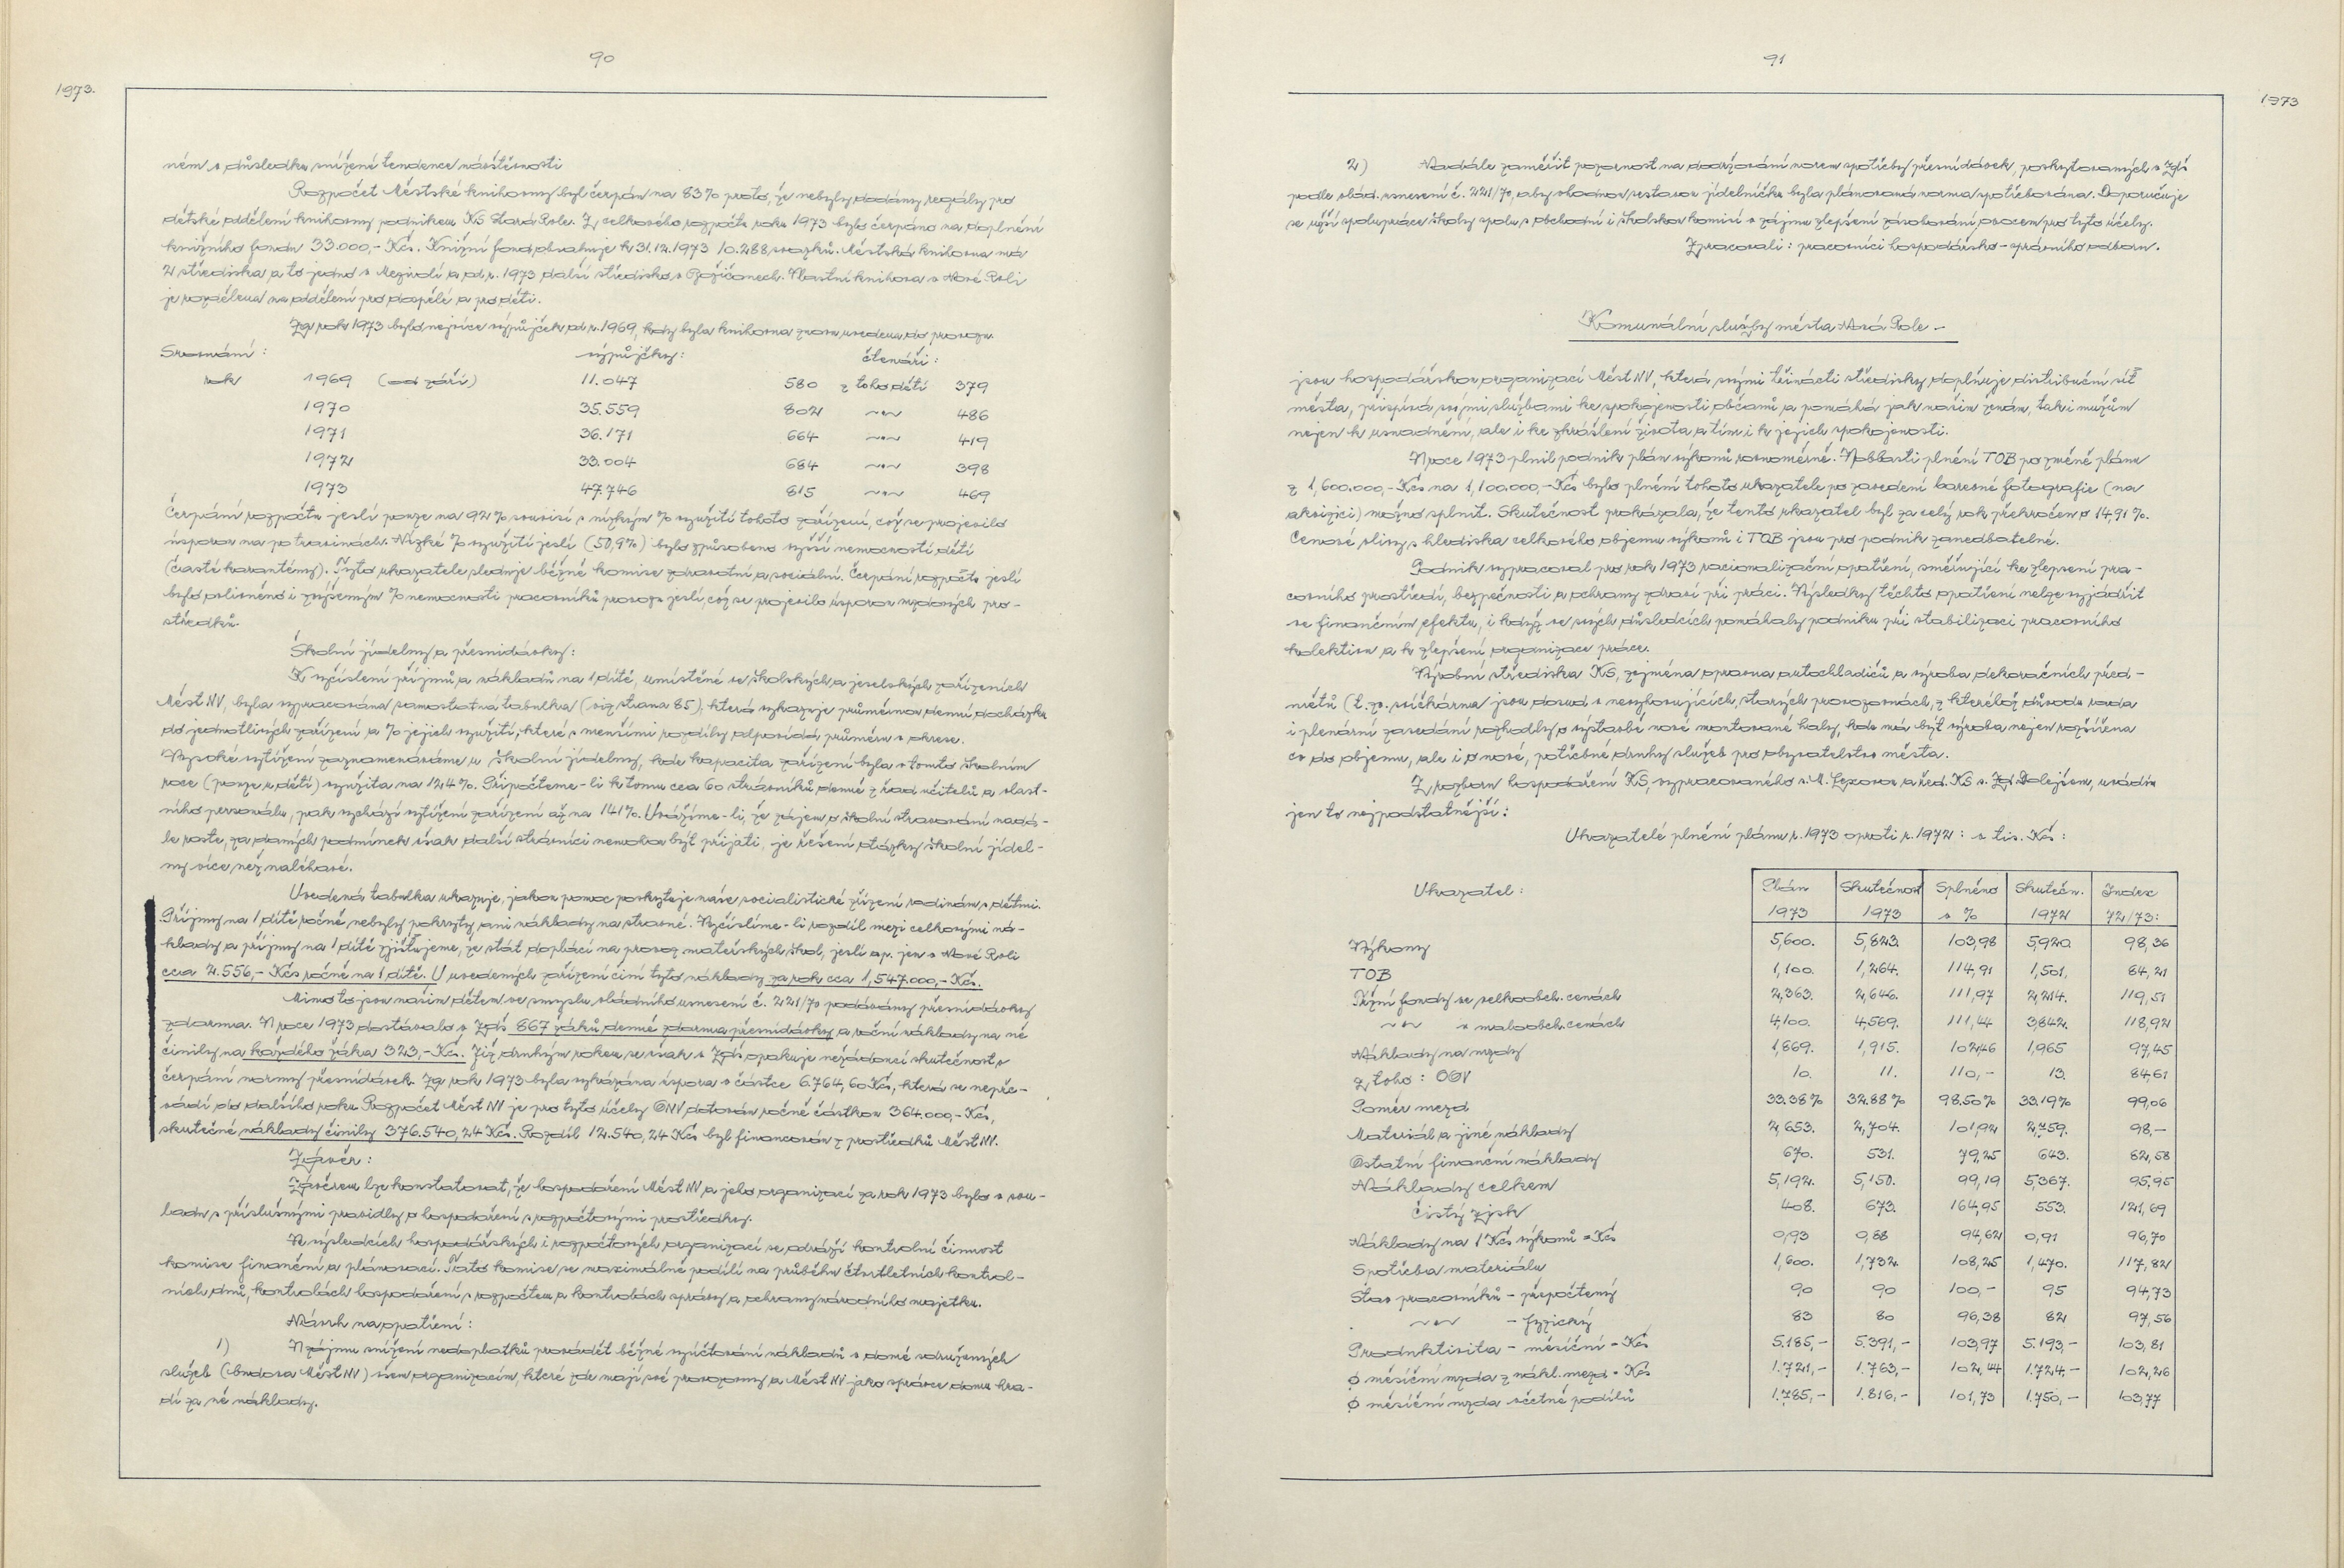 90
1973.
ném v důsledku snížení tendence návštěvnosti
Rozpočet Městské knihovny byl čerpán na 83% proto, že nebyly dodány regály pro
dětské oddělení knihovny podnikem KS Stará Role. Z celkového rozpočtu roku 1973 bylo čerpáno na doplnění
knižního fondu 33.000,- Kčs. Knižní fond obsahuje k 31.12.1973 10.288 svazků. Městská knihovna má
2 střediska, a to jedno v Mezirolí a od r. 1973 další středisko v Božičanech. Vlastní knihovna v Nové Roli
je rozdělena na oddělení pro dospělé a pro děti.
Za rok 1973 bylo nejvíce výpůjček od r. 1969, kdy byla knihovna znovu uvedena do provozu.
Srovnání: výpůjčky: čtenáři:
rok 1969 (od září) 11.047 580 z toho dětí 379
1970 35.559 802 -"- 486
1971 36.171 664 -"- 419
1972 33.004 684 -"- 398
1973 47.746 815 -"- 469
Čerpání rozpočtu jeslí pouze na 92% souvisí s nízkým % využití tohoto zařízení, což se projevilo
úsporou na potravinách. Nízké % využití jeslí (50,9%) bylo způsobeno vyšší nemocností dětí
(časté karantény). Tyto ukazatele sleduje běžně komise zdravotní a sociální. Čerpání rozpočtu jeslí
bylo ovlivněno i zvýšeným % nemocnosti pracovníků provozu jeslí, což se projevilo úsporou mzdových pro-
středků.
Školní jídelny a přesnídávky:
K vyčíslení příjmů a nákladů na 1 dítě, umístěné ve školských a jeselských zařízeních
Měst NV, byla vypracována samostatná tabulka (viz strana 85), která vykazuje průměrnou denní docházku
do jednotlivých zařízení a % jejich využití, které s menšími rozdíly odpovídá průměru v okrese.
Vysoké vytížení zaznamenáváme u školní jídelny, kde kapacita zařízení byla v tomto školním
roce (pouze u dětí) využita na 124%. Připočteme-li k tomu cca 60 strávníků denně z řad učitelů a vlast-
ního personálu, pak vychází vytížení zařízení až na 141%. Uvážíme-li, že zájem o školní stravování nadá-
le roste, za daných podmínek však další strávníci nemohou být přijati, je řešení otázky školní jídel-
ny více než naléhavé.
Uvedená tabulka ukazuje, jakou pomoc poskytuje naše socialistické zřízení rodinám s dětmi.
Příjmy na 1 dítě ročně nebyly pokryty ani náklady na stravné. Vyčíslíme-li rozdíl mezi celkovými ná-
klady a příjmy na 1 dítě zjišťujeme, že stát doplácí na provoz mateřských škol, jeslí ap. jen v Nové Roli
cca 2.556,- Kčs ročně na 1 dítě. U uvedených zařízení činí tyto náklady za rok cca 1,547.000,- Kčs.
Mimo to jsou našim dětem ve smyslu vládního usnesení č. 221/70 podávány přesnídávky
zdarma. V roce 1973 dostávalo v ZDŠ 867 žáků denně zdarma přesnídávky a roční náklady na ně
činily na každého žáka 323,- Kčs. Již druhým rokem se však v ZDŠ opakuje nežádoucí skutečnost v
čerpání normy přesnídávek. Za rok 1973 byla vykázána úspora v částce 6.764,60 Kčs, která se nepře-
vádí do dalšího roku. Rozpočet Měst NV je pro tyto účely ONV dotován ročně částkou 364.000,- Kčs,
skutečné náklady činily 376.540,24 Kčs. Rozdíl 12.540,24 Kčs byl financován z prostředků Měst NV.
Závěr:
Závěrem lze konstatovat, že hospodaření Měst NV a jeho organizací za rok 1973 bylo v sou-
ladu s příslušnými pravidly o hospodaření s rozpočtovými prostředky.
Ve výsledcích hospodářských i rozpočtových organizací se odráží kontrolní činnost
komise finanční a plánovací. Tato komise se maximálně podílí na průběhu čtvrtletních kontrol-
ních dnů, kontrolách hospodaření s rozpočtem a kontrolách správy a ochrany národního majetku.
Návrh na opatření:
1) V zájmu snížení nedoplatků provádět běžné vyúčtování nákladů v domě sdružených
služeb (budova Měst NV) všem organizacím, které zde mají své provozovny a Měst NV jako správce domu hra-
dí za ně náklady.
91
1973
2) Nadále zaměřit pozornost na dodržování norem spotřeby přesnídávek, poskytovaných v ZDŠ
podle vlád. usnesení č. 221/70, aby vhodnou sestavou jídelníčku byla plánovaná norma spotřebována. Doporučuje
se užší spolupráce školy spolu s obchodní i školskou komisí v zájmu zlepšení zásobování ovocem pro tyto účely.
Zpracovali: pracovníci hospodářsko-správního odboru.
Komunální služby města Nová Role -
jsou hospodářskou organizací Měst NV, která svými třinácti středisky doplňuje distribuční síť
města, přispívá svými službami ke spokojenosti občanů a pomáhá jak našim ženám, tak i mužům
nejen k usnadnění, ale i ke zkrášlení života a tím i k jejich spokojenosti.
V roce 1973 plnil podnik plán výkonů rovnoměrně. V oblasti plnění TOB po změně plánu
z 1,600.000,- Kčs na 1,100.000,- Kčs bylo plnění tohoto ukazatele po zavedení barevné fotografie (na
akvizici) možno splnit. Skutečnost prokázala, že tento ukazatel byl za celý rok překročen o 14,91%.
Cenové vlivy s hlediska celkového objemu výkonů i TOB jsou pro podnik zanedbatelné.
Podnik vypracoval pro rok 1973 racionalizační opatření, směřující ke zlepšení pra-
covního prostředí, bezpečnosti a ochrany zdraví při práci. Výsledky těchto opatření nelze vyjádřit
ve finančním efektu, i když ve svých důsledcích pomáhaly podniku při stabilizaci pracovního
kolektivu a k zlepšení organizace práce.
Výrobní střediska KS, zejména oprava autochladičů a výroba dekoračních před-
mětů (t.zv. svíčkárna) jsou dosud v nevyhovujících, starých provozovnách, z kteréhož důvodu rada
i plenární zasedání rozhodly o výstavbě nové montované haly, kde má být výroba nejen rozšířena
co do objemu, ale i o nové, potřebné druhy služeb pro obyvatelstvo města.
Z rozboru hospodaření KS, vypracovaného s. M. a řed. KS s. Zd. Dolejšem, uvádím
jen to nejpodstatnější:
Ukazatelé plnění plánu r. 1973 oproti r. 1972: v tis. Kčs:
Ukazatel: Plán 1973 Skutečnost 1973 Splněno v % Skutečn. 1972 Index 72/73:
Výkony 5,600. 5,823. 103,98 5,920. 98,36
TOB 1,100. 1,264. 114,91 1,501. 84,21
Tržní fondy ve velkoobch. cenách 2,363. 2,646. 111,97 2,214. 119,51
-"- v maloobch. cenách 4,100. 4,569. 111,44 3,842. 118,92
Náklady na mzdy 1,869. 1,915. 102,46 1,965 97,45
z toho: OON 10. 11. 110,- 13. 84,61
Poměr mezd 33.38% 32.88% 98.50% 33.19% 99,06
Materiál a jiné náklady 2,653. 2,704. 101,92 2,759. 98,-
Ostatní finanční náklady 670. 531. 79,25 643. 82,58
Náklady celkem 5,192. 5,150. 99,19 5,367. 95,95
Čistý zisk 408. 673. 164,95 553. 121,69
Náklady na 1 Kčs výkonů = Kčs 0,93 0,88 94,62 0,91 96,70
Spotřeba materiálu 1,600. 1,732. 108,25 1,470. 117,82
Stav pracovníků - přepočtený 90 90 100,- 95 94,73
-"- - fyzický 83 80 96,38 82 97,56
Produktivita - měsíční = Kčs 5.185,- 5.391,- 103,97 5.193,- 103,81
Ø měsíční mzda z nákl. mezd = Kčs 1.721,- 1.763,- 102,44 1.724,- 102,26
Ø měsíční mzda včetně podílů 1.785,- 1.816,- 101,73 1.750,- 103,77